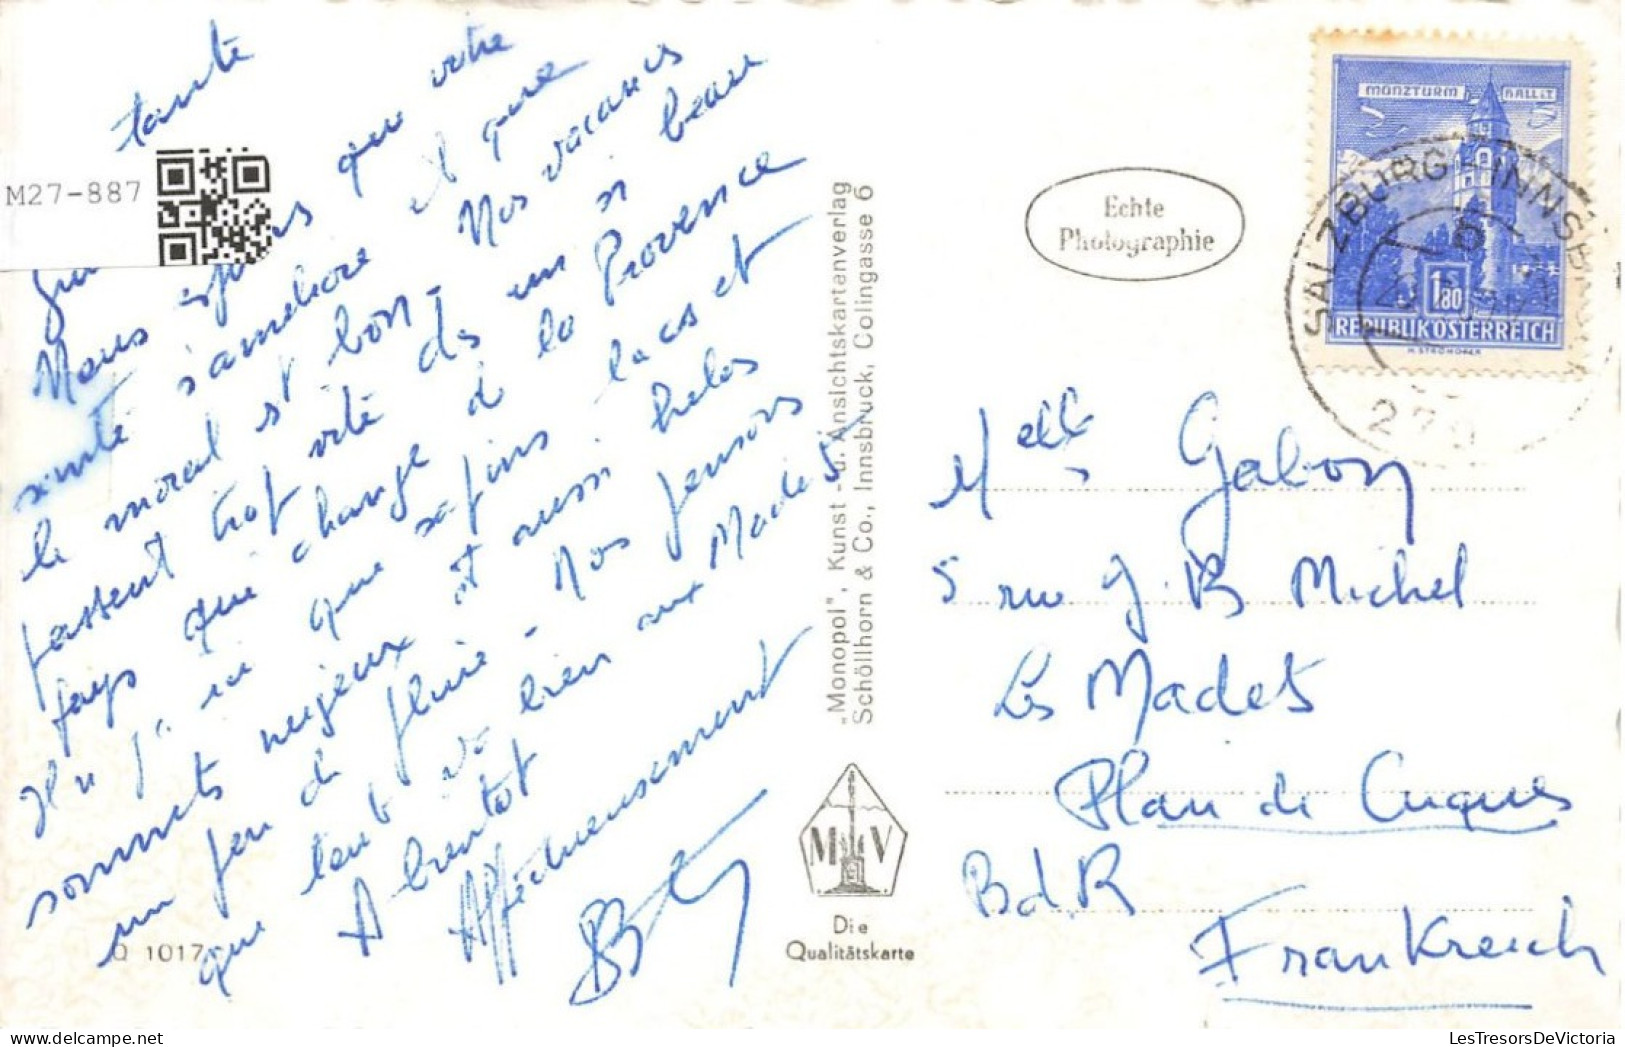 tante
M27-887
Nous espérons que votre
santé s'améliore et que
le moral est bon. Nos vacances
passent trop vite ds un si beau
pays qui change de la Provence
Il n'y a ici que sapins lacs et
sommets neigeux et aussi helas
un peu de pluie - Nos pensons
que tout va bien aux Madets
A bientot
Affectueusement
Q 1017
„Monopol", Kunst - u. Ansichtskartenverlag
Schöllhorn & Co., Innsbruck, Colingasse 6
M V
Die
Qualitätskarte
Echte
Photographie
MÜNZTURM HALL I.T.
S
1.80
REPUBLIK ÖSTERREICH
H. STROHOFER
SALZBURG - INNSBRUCK
Melle Gabory
5 rue J. B Michel
Les Madets
Plan de Cuques
BdR
Frankreich
LesTresorsDeVictoria